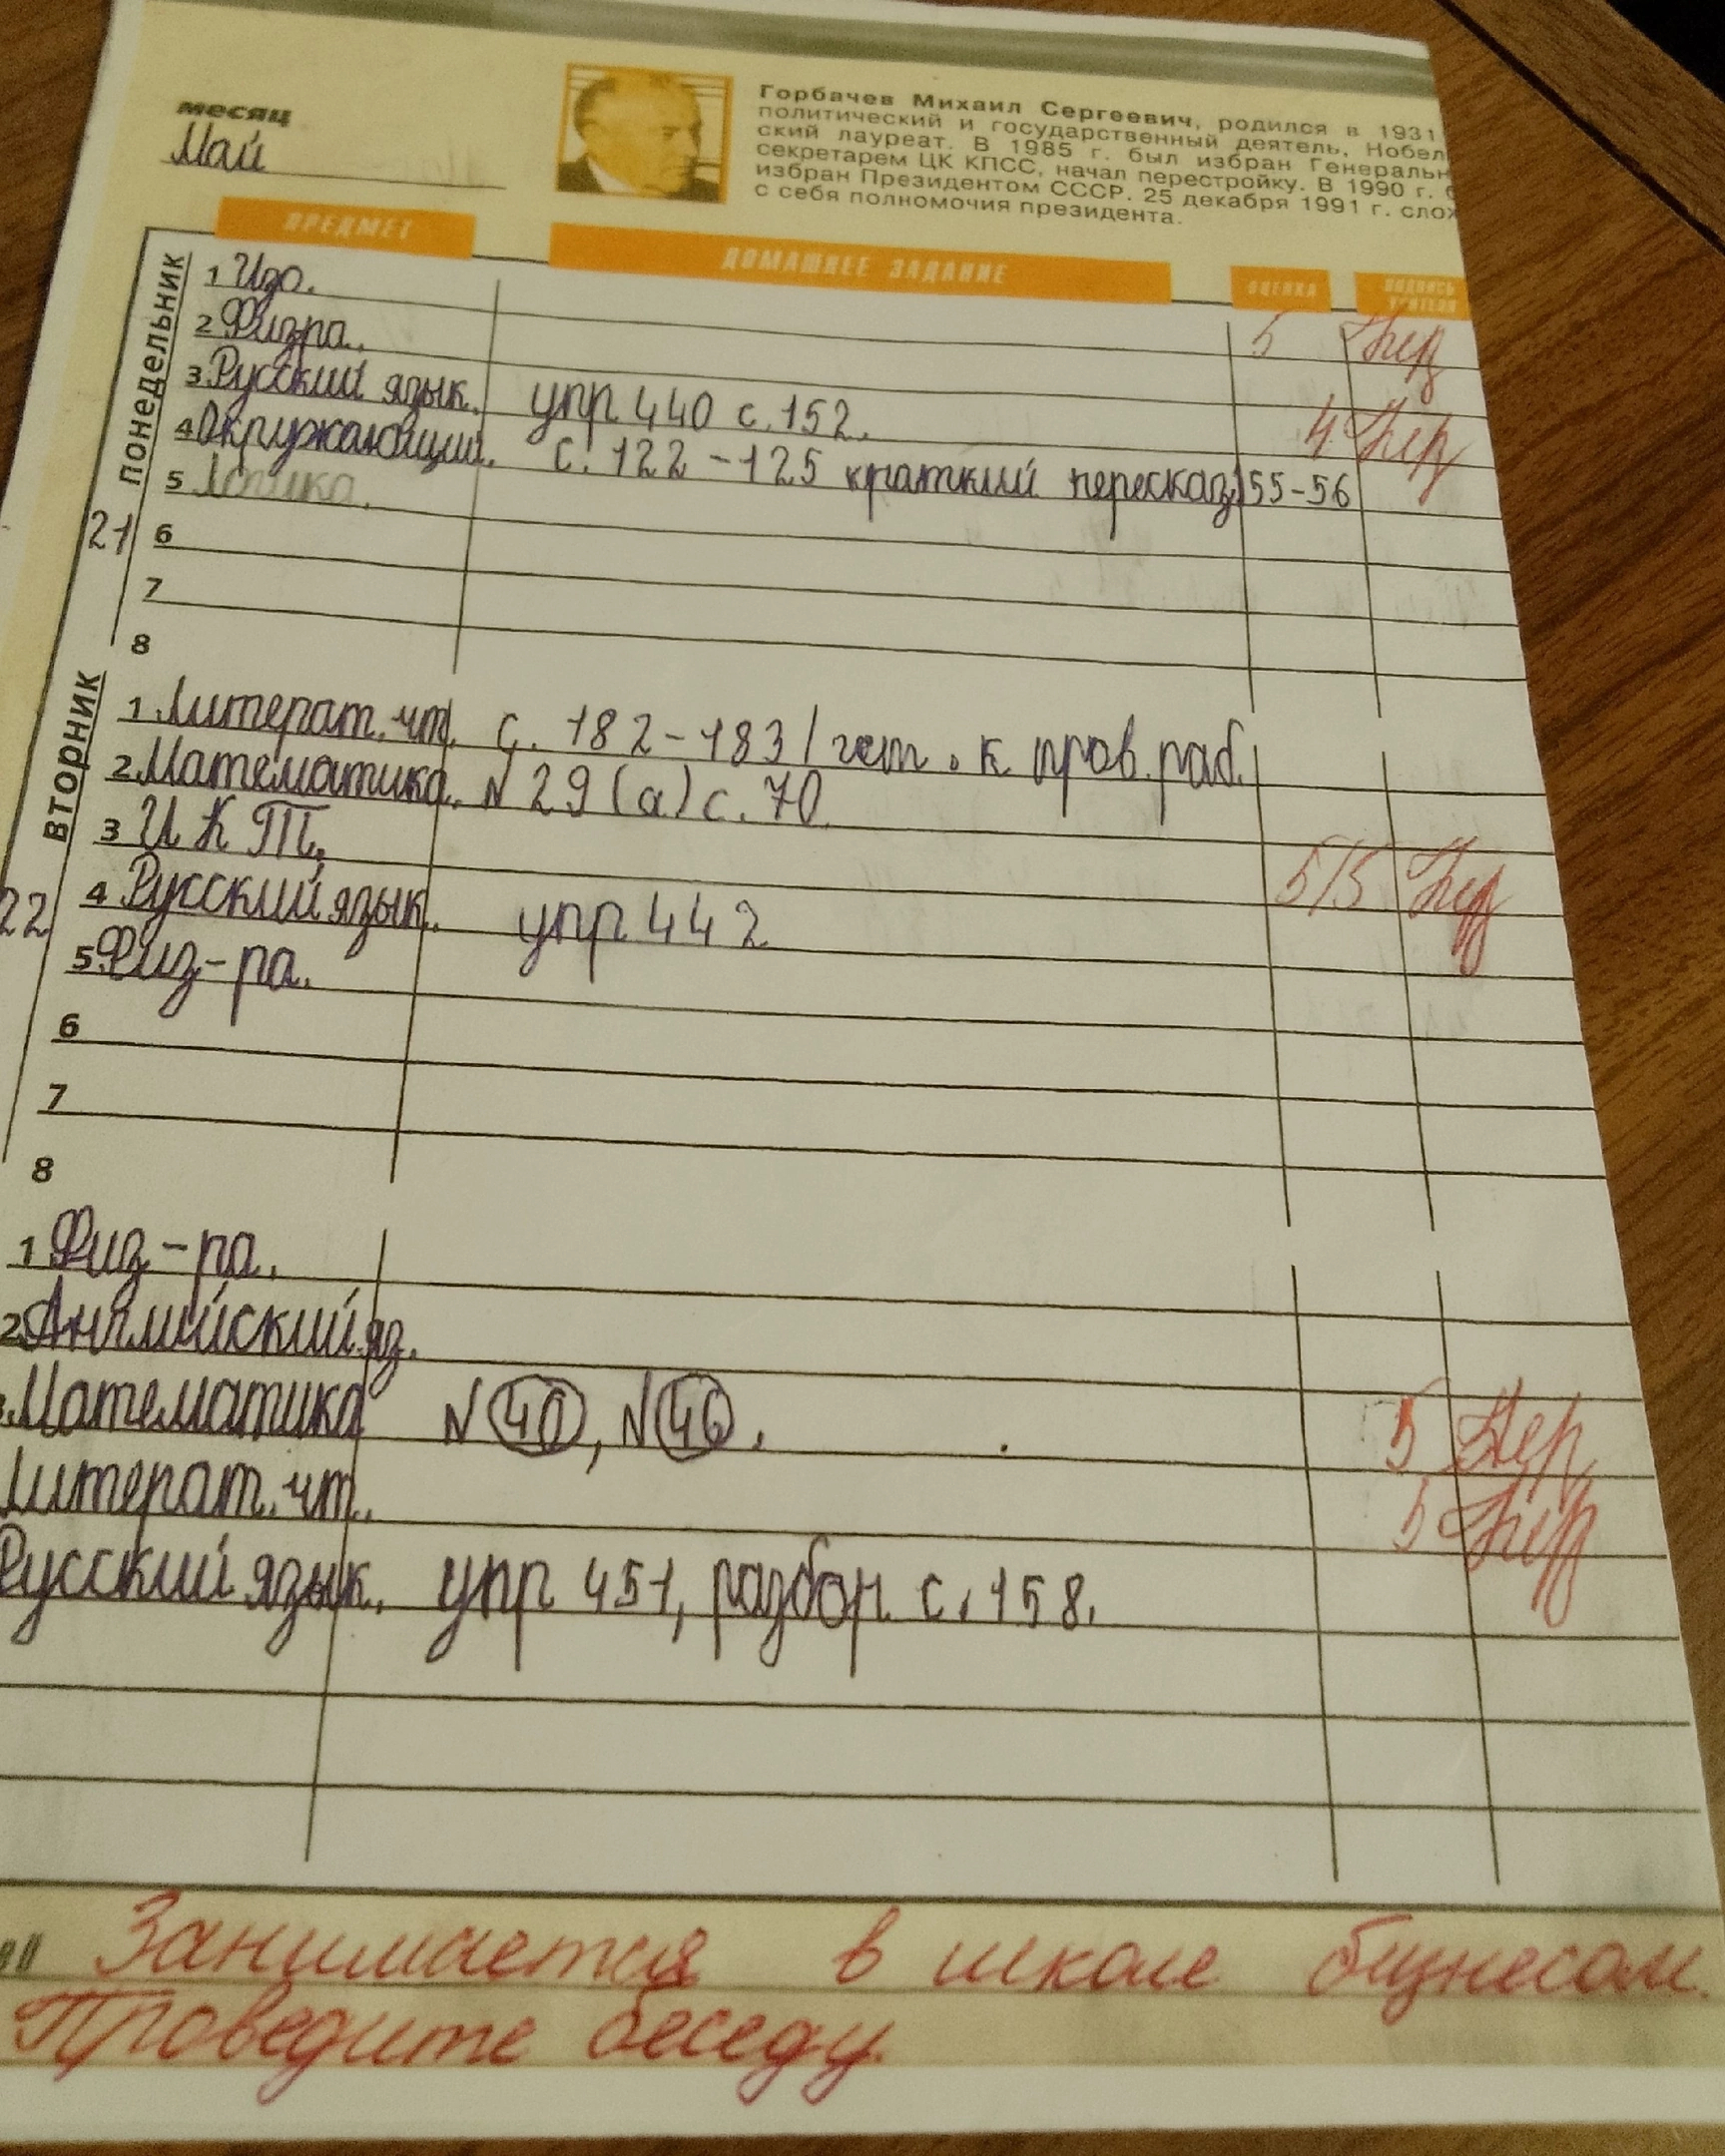 месяц
Май
Горбачев Михаил Сергеевич, родился в 1931
политический и государственный деятель, Нобел
ский лауреат. В 1985 г. был избран Генеральн
секретарем ЦК КПСС, начал перестройку. В 1990 г. б
избран Президентом СССР. 25 декабря 1991 г. слож
с себя полномочия президента.
ПРЕДМЕТ ДОМАШНЕЕ ЗАДАНИЕ ОЦЕНКА ПОДПИСЬ УЧИТЕЛЯ
понедельник
21
1 Изо.
2 Физра. 5
3 Русский язык. упр 440 с. 152.
4 Окружающий. с. 122-125 краткий пересказ 55-56 4
5 Логика.
6
7
8
вторник
22
1 Литерат. чт. с. 182-183 / гот. к пров. раб.
2 Математика. N 29 (а) с. 70
3 ИКТ.
4 Русский язык. упр 442 5/5
5 Физ-ра.
6
7
8
1 Физ-ра.
2 Английский яз.
Математика N 40, N 46. 5
Литерат. чт. 5
Русский язык. упр 451, разбор с. 158.
Занимается в школе бизнесом.
Проведите беседу.